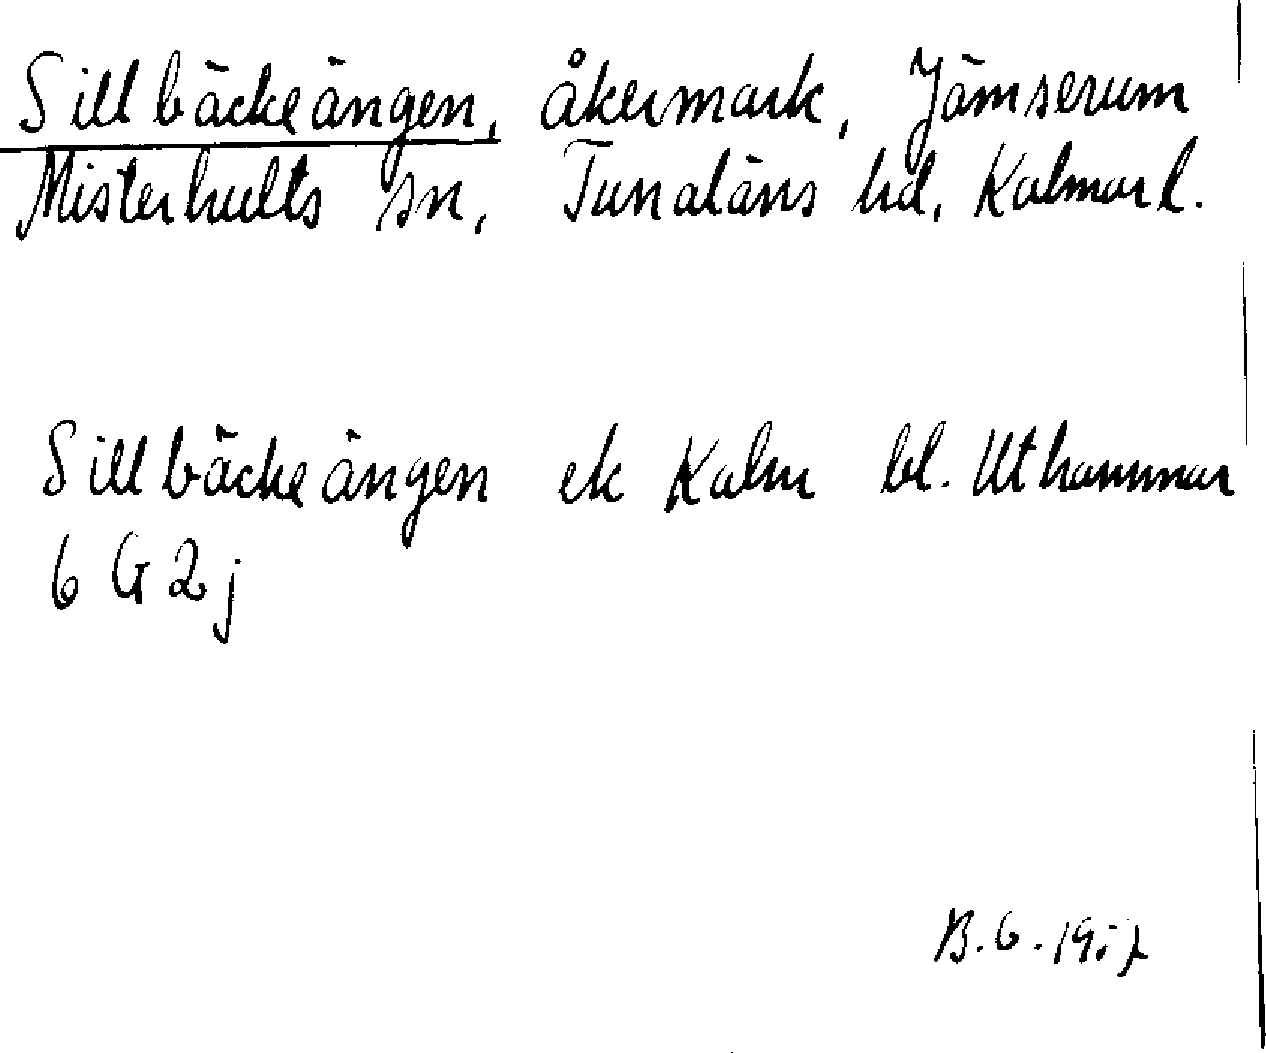 Sillbäckeängen, åkermark, Jämserum
Misterhults sn, Tunaläns hd, Kalmar l.
Sillbäckeängen ek Kalm bl. Uthammar
6 G 2 j
B.G. 1957